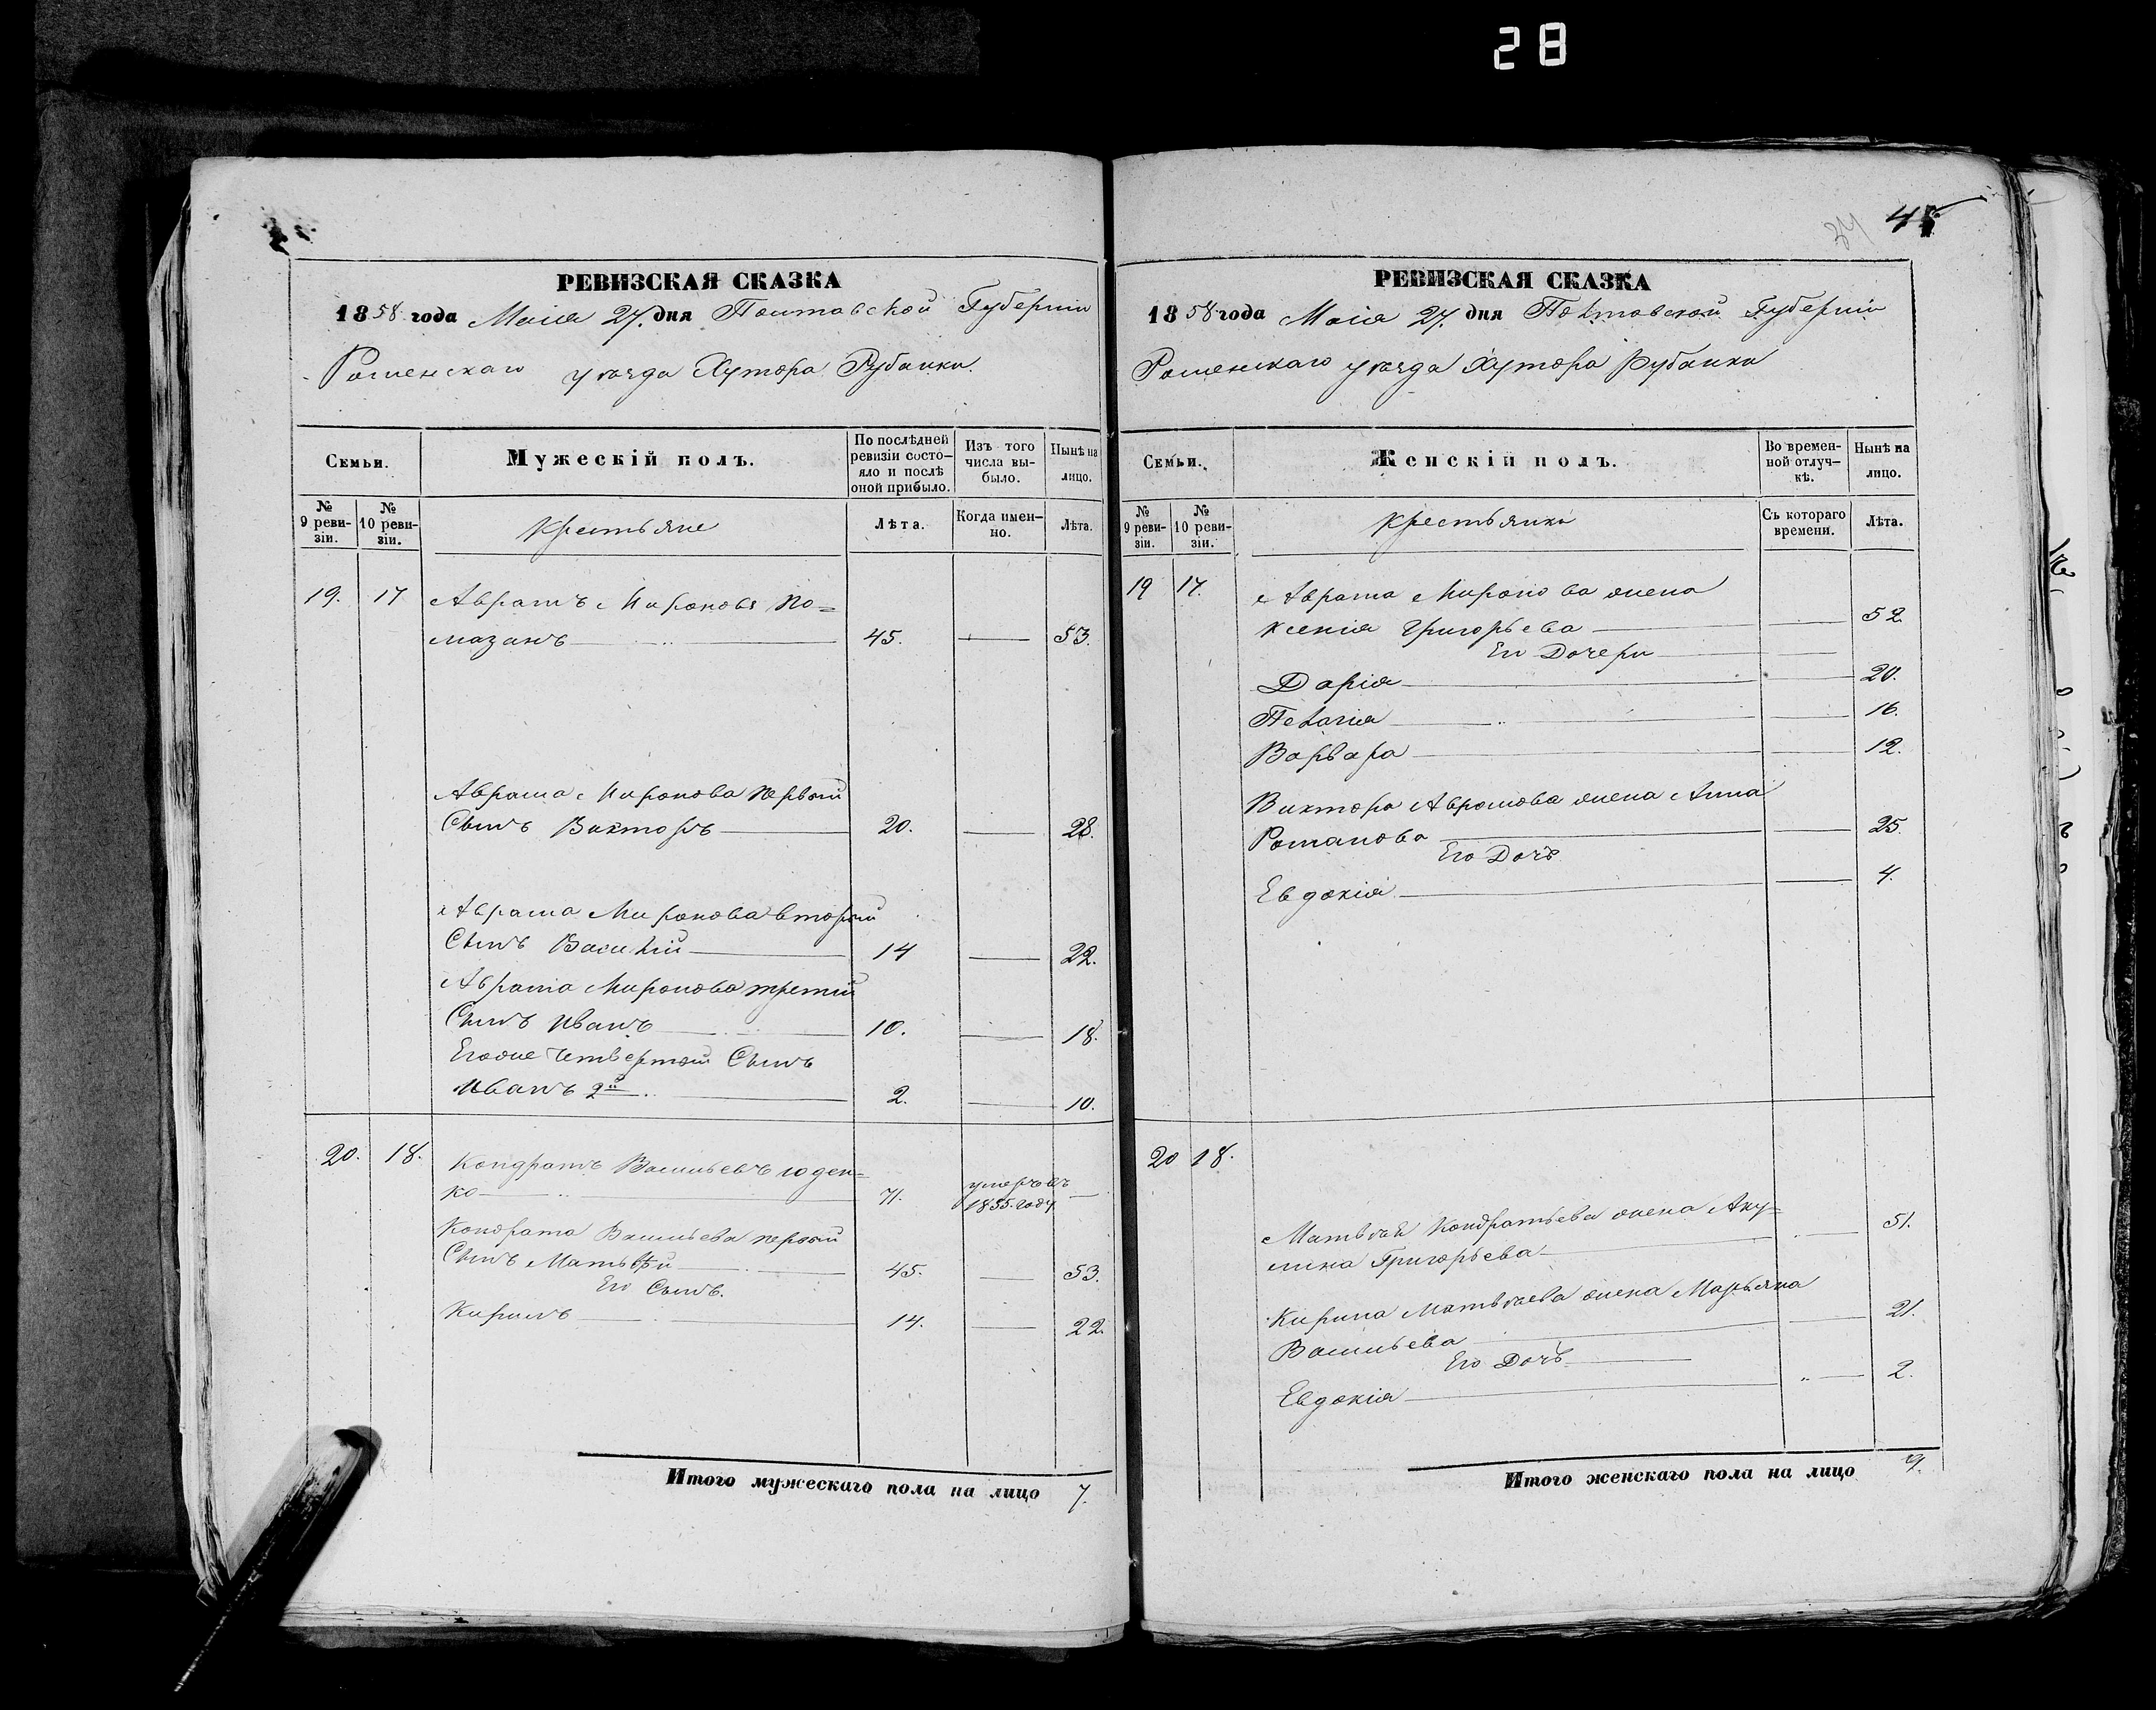 28
РЕВИЗСКАЯ СКАЗКА
1858 года Маія 27. дня Полтавской Губерніи
Роменскаго уѣзда Хутора Рубанки.
Семьи.
Мужескій полъ.
По послѣдней ревизіи состо-
яло и послѣ
оной прибыло.
Изъ того
числа вы-
было.
Нынѣ на
лицо.
№
9 реви-
зіи.
№
10 реви-
зіи.
Крестьяне
Лѣта.
Когда имен-
но.
Лѣта.
19. 17 Аврамъ Мироновъ По=
мазанъ 45. 53.
Аврама Миронова первый
Сынъ Викторъ 20. 28.
Аврама Миронова вторый
Сынъ Василій 14 22.
Аврама Миронова третій
Сынъ Иванъ 10. 18.
Егоже Четвертый Сынъ
Иванъ 2й 2. 10.
20. 18. Кондратъ Васильевъ
ко 71. умеръ въ
1855. году
Кондрата Васильева первый
Сынъ Матвѣй 45. 53.
Его Сынъ.
Кирилъ 14. 22.
Итого мужескаго пола на лицо 7.
34 45
РЕВИЗСКАЯ СКАЗКА
1858 года Маія 27. дня Полтавской Губерніи
Роменскаго уѣзда Хутора Рубанки
Семьи.
Женскій полъ.
Во времен-
ной отлуч-
кѣ.
Нынѣ на
лицо.
№
9 реви-
зіи.
№
10 реви-
зіи.
Крестьянки
Съ котораго
времени.
Лѣта.
19 17. Аврама Миронова жена
Ксенія Григорьева 52.
Его Дочери
Дарія 20.
Пелагія 16.
Варвара 12.
Виктора Аврамова жена Анна
Романова 25.
Его Дочь
Евдокія 4.
20 18.
Матвѣя Кондратьева жена Аку=
лина Григорьева 51.
Кирила Матвѣева жена Марьяна
Васильева 21.
Его Дочь
Евдокія 2.
Итого женскаго пола на лицо 9.